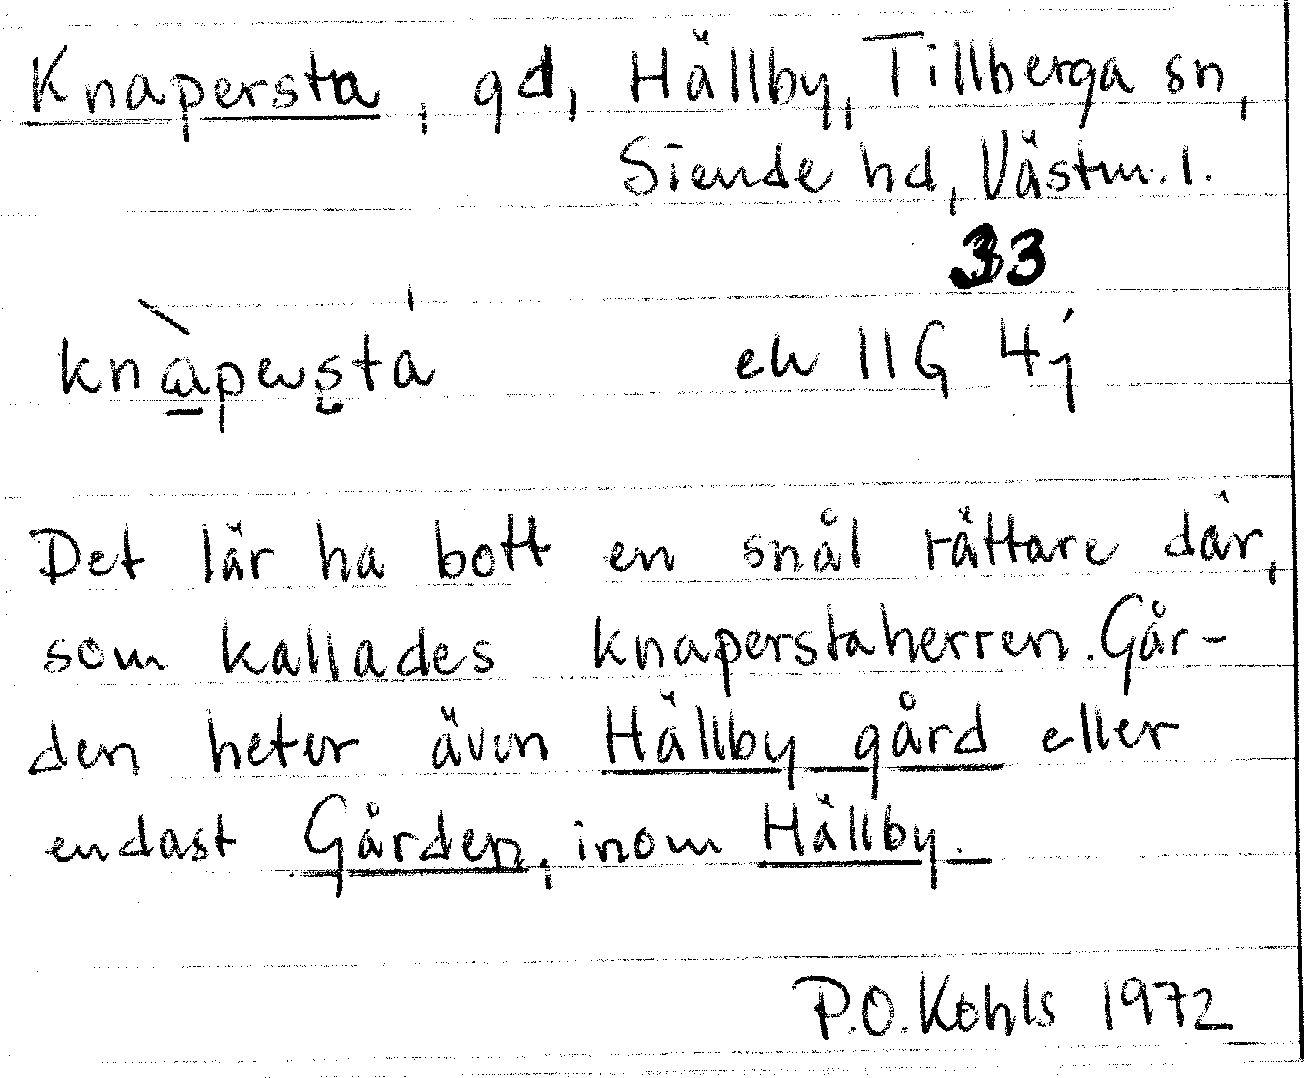 Knapersta, gd, Hällby, Tillberga sn,
Siende hd, Västm. l.
33
knàpersta ek 11G 4j
Det lär ha bott en snål rättare där,
som kallades knaperstaherren. Går-
den heter även Hällby gård eller
endast Gården, inom Hällby.
P.O. Kohls 1972